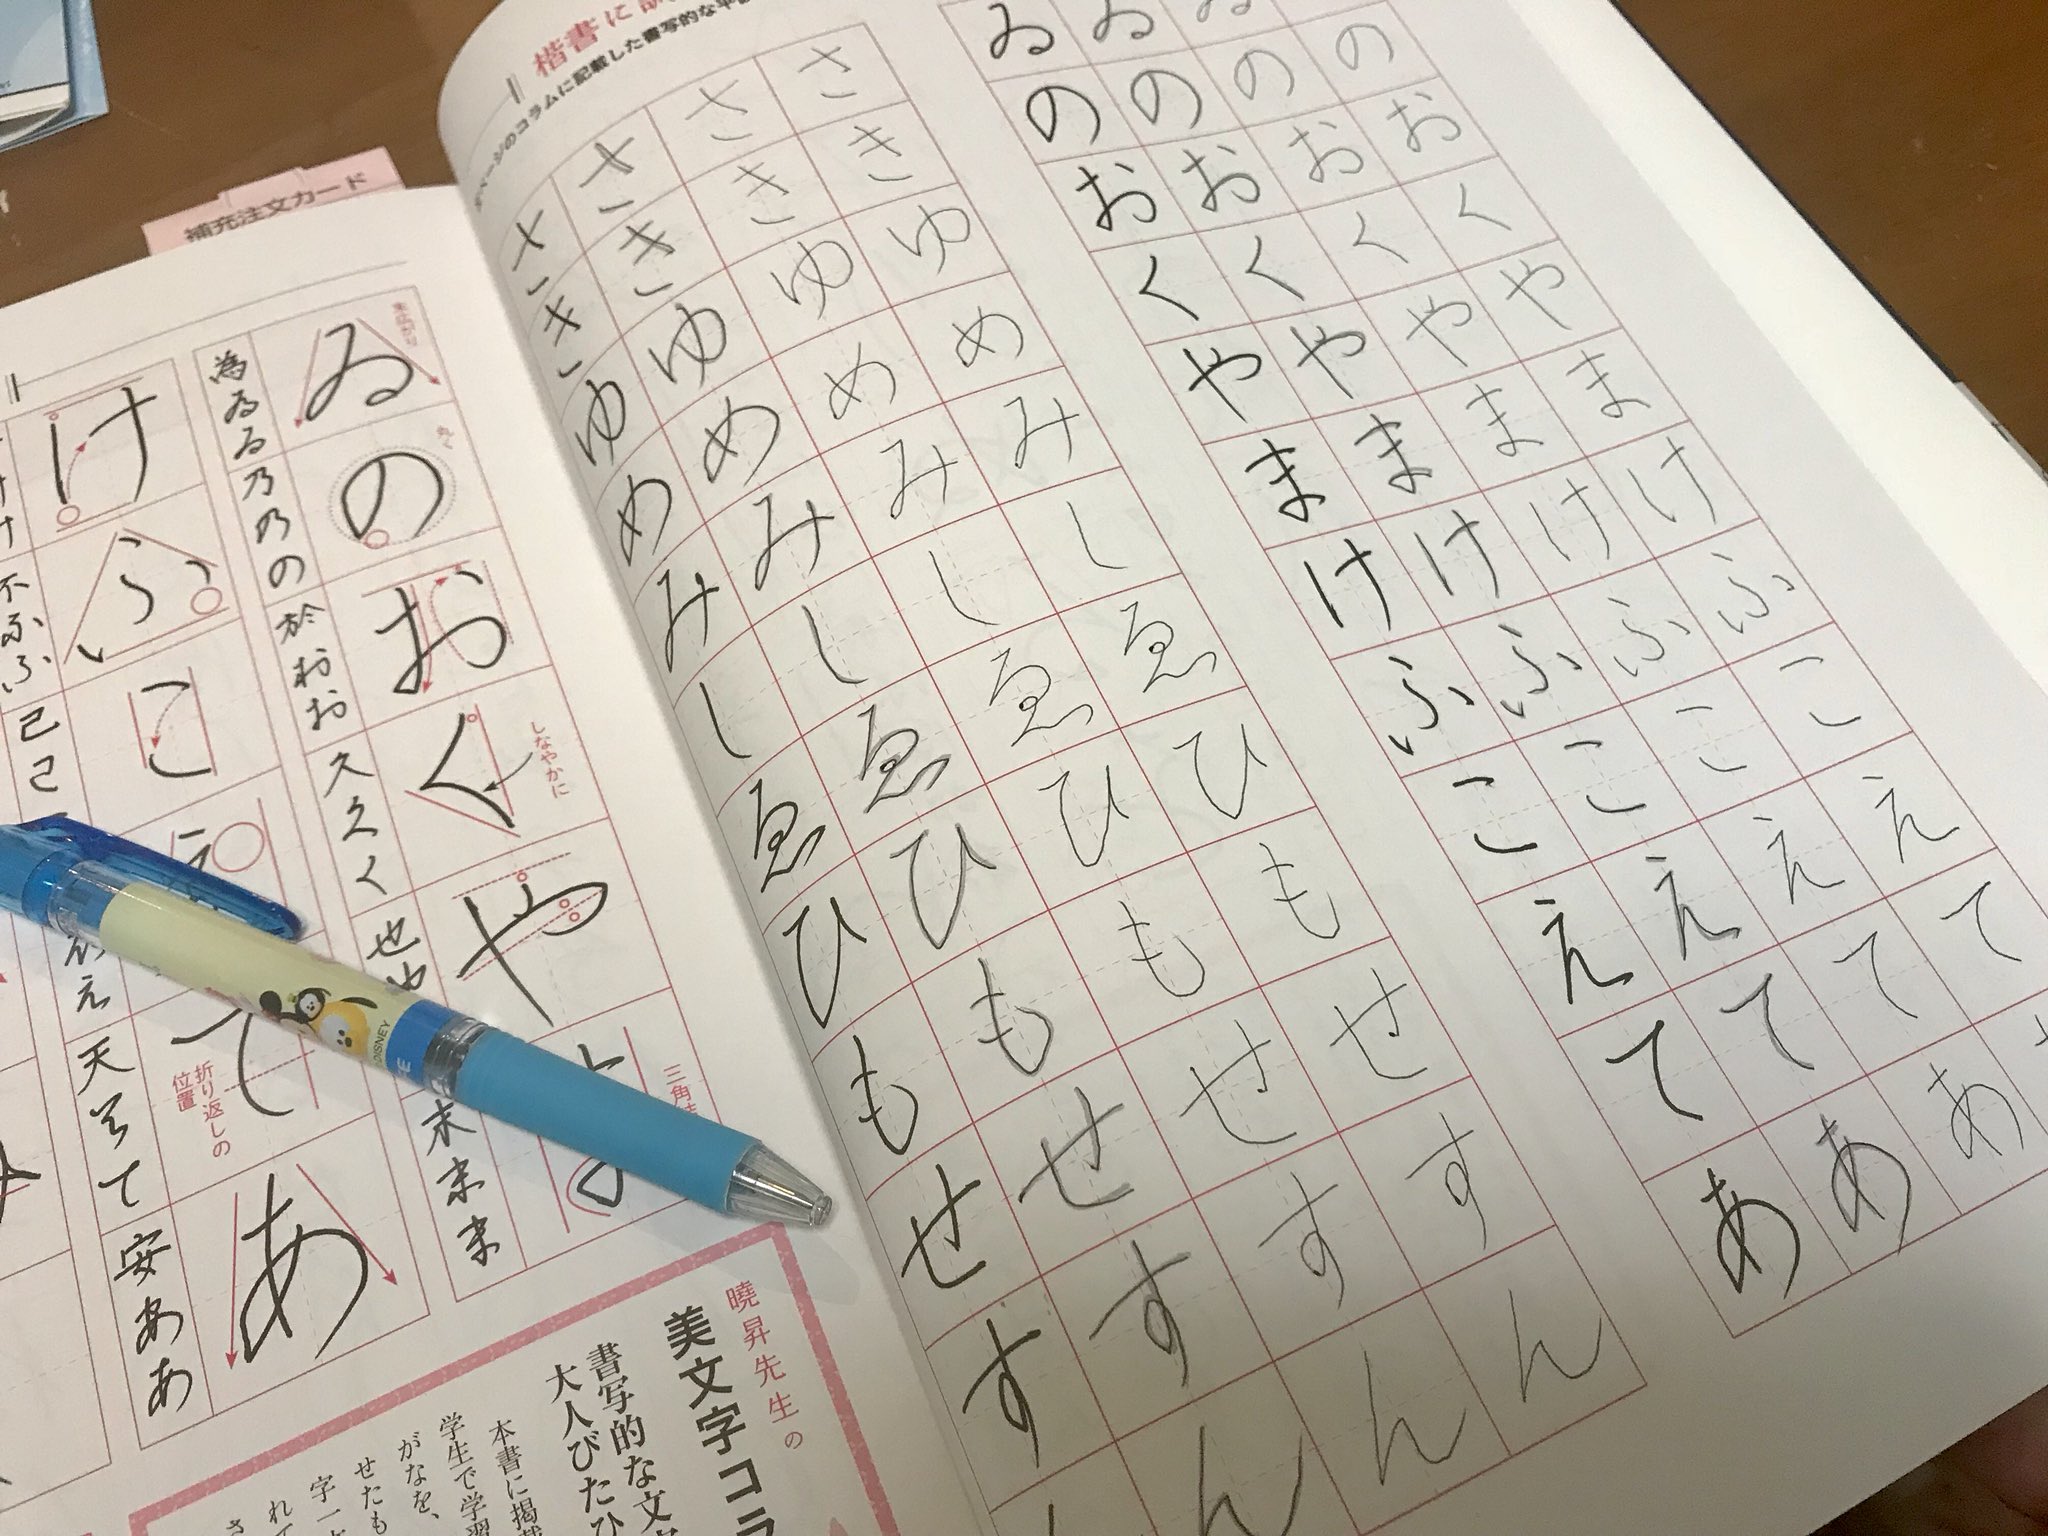 補充注文カード
楷書に
ページのコラムに記載した書写的な平
ゐゐゐ
のののの
おおおお
くくくく
やややや
まままま
けけけけ
ふふふふ
ここここ
ええええ
てててて
あああ
ささささ
きききき
ゆゆゆゆ
めめめめ
みみみみ
しししし
ゑゑゑゑ
ひひひひ
もももも
せせせせ
すすすす
んんん
ゐのおくや
丸く
しなやかに
三角
為ゐゐ乃乃の於おお久久く也や
末末ま
けふこ
てあ
折り返しの
位置
不ふふ己こ
ええ天てて安ああ
DISNEY
曉昇先生の
美文字コラ
書写的な文
大人びたひ
本書に掲載
学生で学習
がなを、
せたも
字一
れて
さ